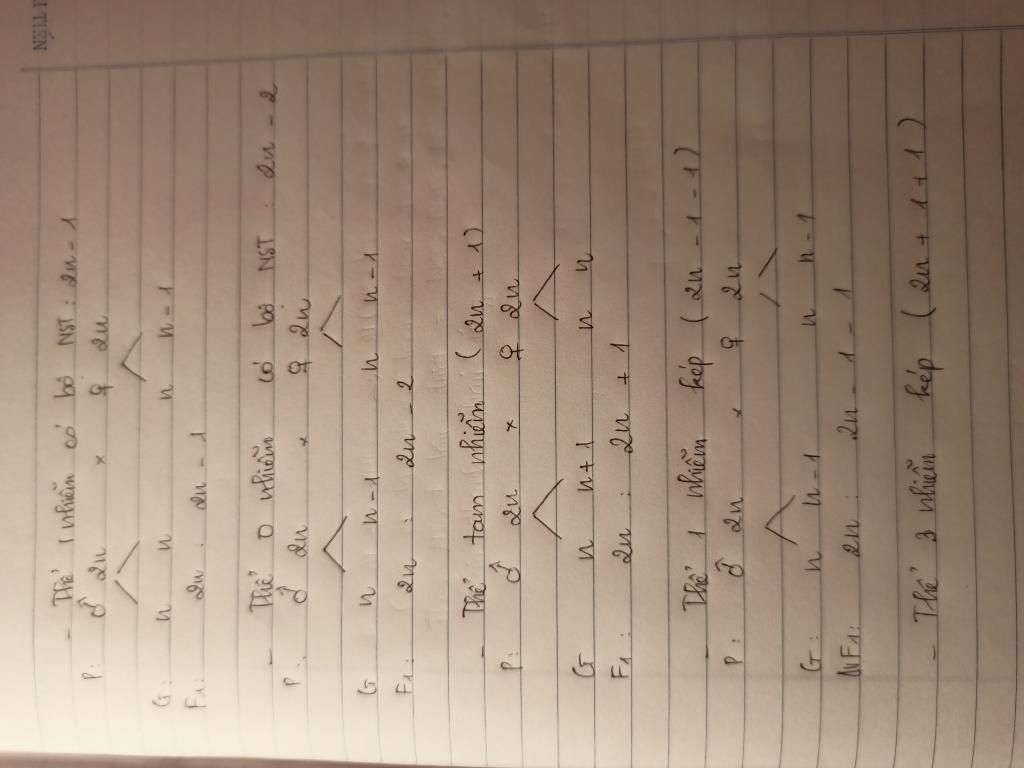 - Thể 1 nhiễm có bộ NST: 2n - 1
P: ♂ 2n × ♀ 2n
G: n n n n-1
F1: 2n : 2n - 1
- Thể 0 nhiễm có bộ NST: 2n - 2
P: ♂ 2n × ♀ 2n
G n n-1 n n-1
F1: 2n : 2n - 2
- Thể tam nhiễm (2n + 1)
P: ♂ 2n × ♀ 2n
G n n+1 n n
F1: 2n : 2n + 1
- Thể 1 nhiễm kép (2n - 1 - 1)
P: ♂ 2n × ♀ 2n
G: n n-1 n n-1
F1: 2n : 2n - 1 - 1
- Thể 3 nhiễm kép (2n + 1 + 1)